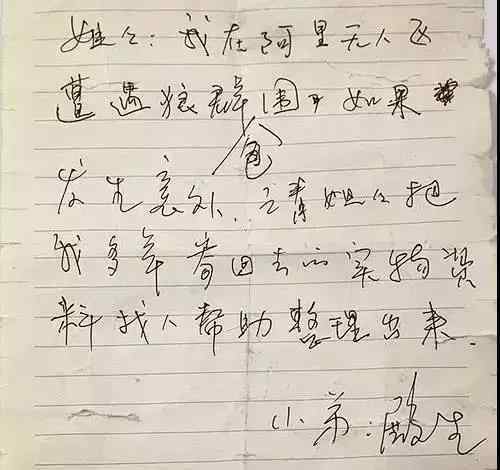 姐々：我在阿里无人区
遭遇狼群包围 如果
发生意外，请姐々把
我多年寄回去的实物资
料找人帮助整理出来.
小弟：生